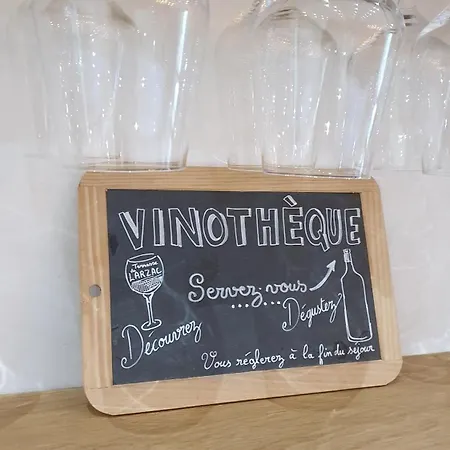 VINOTHÈQUE
Terrasses du LARZAC
Servez-vous
Découvrez
Dégustez
Vous réglerez à la fin du séjour